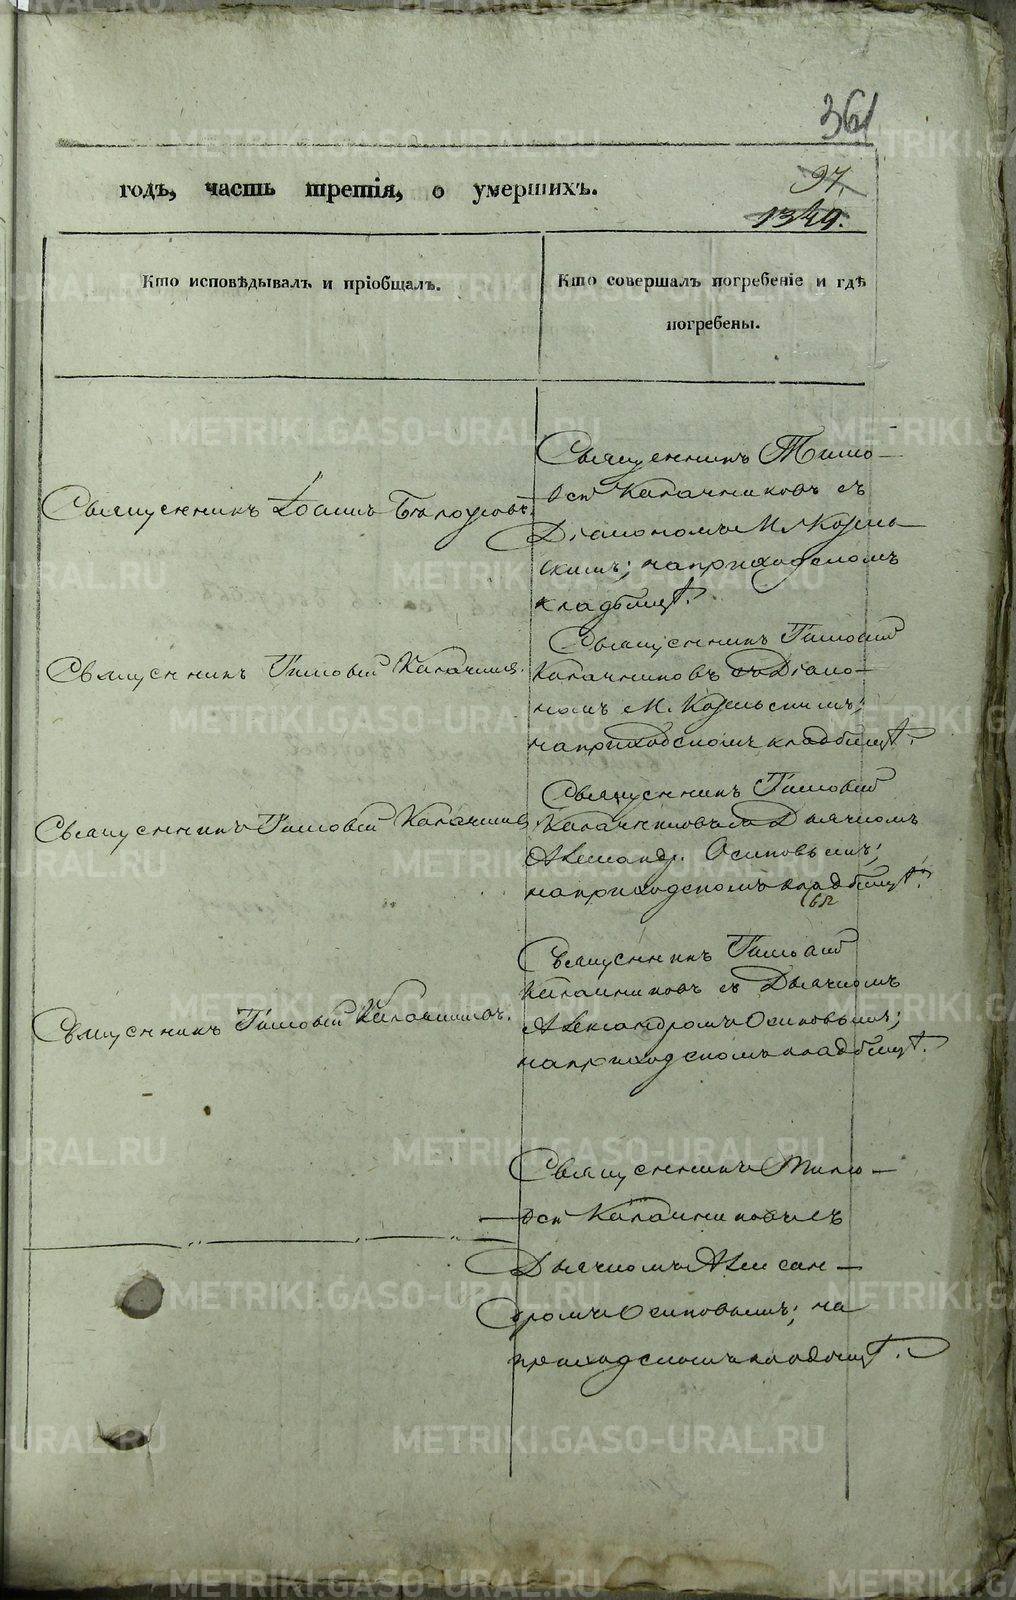 361
97
1349.
годъ, часть третія, о умершихъ.
Кто исповѣдывалъ и пріобщалъ.
Кто совершалъ погребеніе и гдѣ
погребены.
Священникъ Іоаннъ Бѣлоусовъ.
Священникъ Тимо-
ѳей Калачниковъ съ
Діакономъ М. Козель-
скимъ; на приходскомъ
кладбищѣ.
Священникъ Тимоѳей
Священникъ Тимоѳей
Калачниковъ съ Діако-
номъ М. Козельскимъ;
на приходскомъ кладбищѣ.
Священникъ Тимоѳей
Священникъ Тимоѳей
Калачниковъ съ Дьячкомъ
Александр. Осиповымъ;
на приходскомъ кладбищѣ.
Священникъ Тимоѳей Калачниковъ.
Священникъ Тимоѳей
Калачниковъ съ Дьячкомъ
Александромъ Осиповымъ;
на приходскомъ кладбищѣ.
Священникъ Тимо-
ѳей Калачниковъ съ
Дьячкомъ Алексан-
дромъ Осиповымъ; на
приходскомъ кладбищѣ.
METRIKI.GASO-URAL.RU